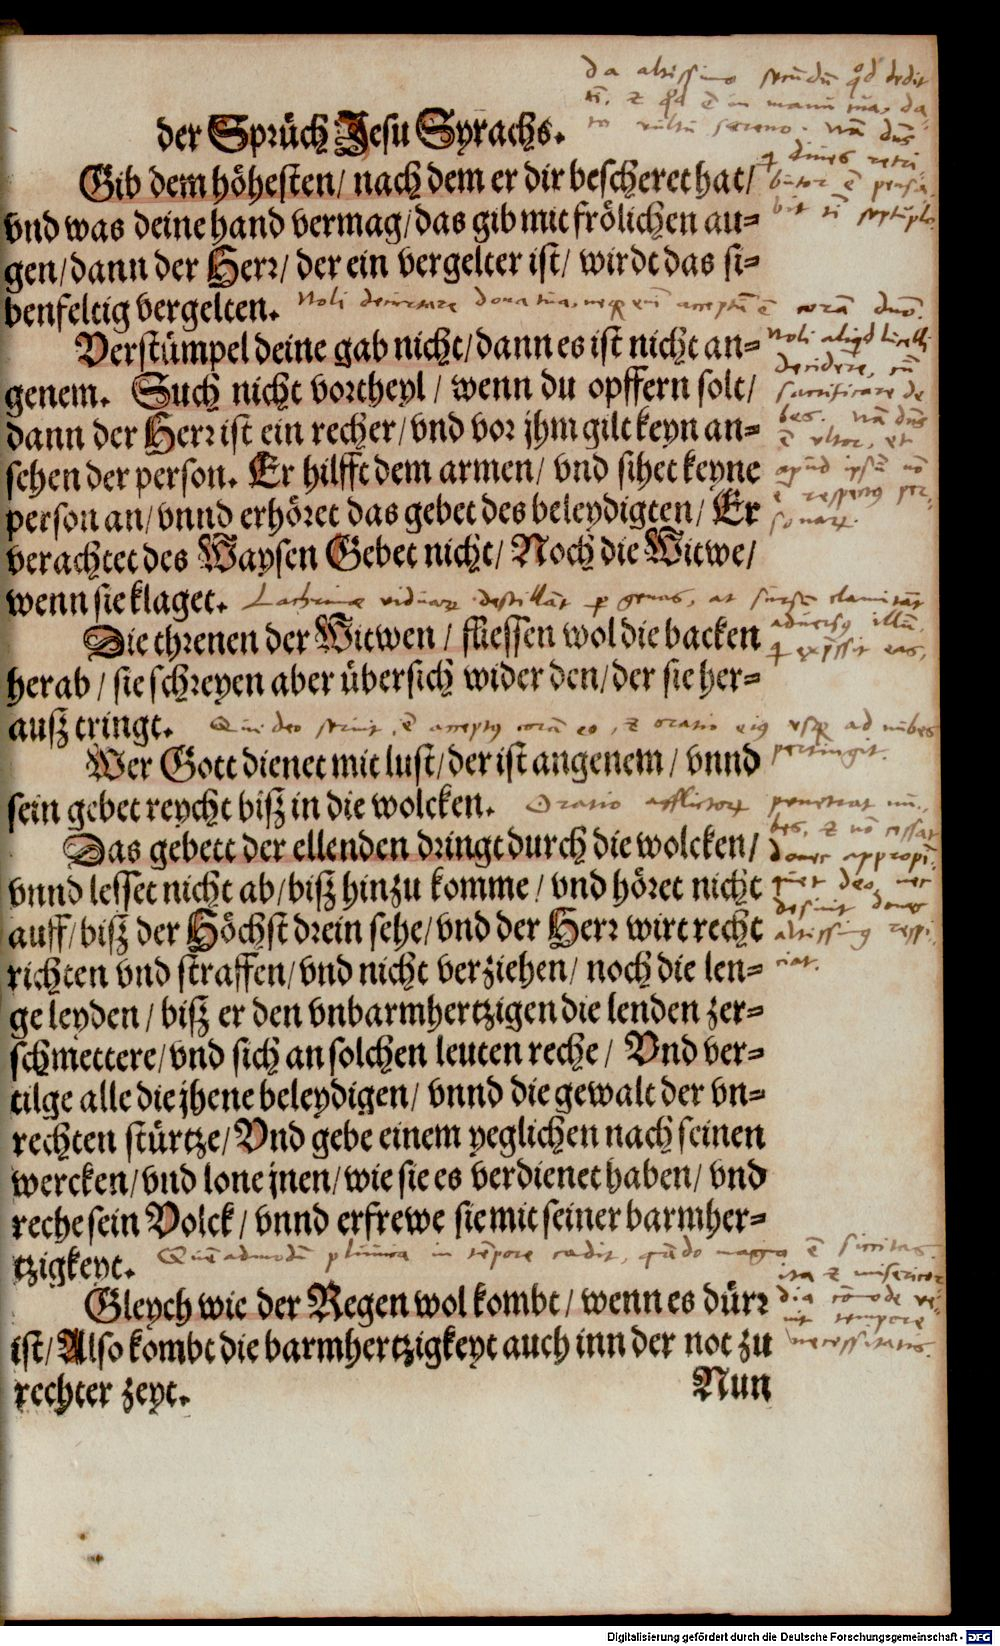 da altissimo secundũ qd dedit
der Sprüch Jesu Syrachs.
Gib dem höhesten/ nach dem er dir bescheret hat/
vnd was deine hand vermag/ das gib mit frölichen au⸗
gen/ dann der Herr/ der ein vergelter ist/ wirdt das si⸗
benfeltig vergelten.
Noli decurtare dona tua,
Verstümpel deine gab nicht/ dann es ist nicht an⸗
genem. Such nicht vortheyl/ wenn du opffern solt/
dann der Herr ist ein recher/ vnd vor jhm gilt keyn an⸗
sehen der person. Er hilfft dem armen/ vnd sihet keyne
person an/ vnnd erhöret das gebet des beleydigten/ Er
verachtet des Waysen Gebet nicht/ Noch die Witwe/
wenn sie klaget.
Lachrimæ
genas, at
Die threnen der Witwen/ fliessen wol die backen
herab/ sie schreyen aber übersich wider den/ der sie her⸗
auß tringt.
Qui deo seruit, ẽ acceptus corã eo, & oratio eius usque ad nubes
pertingit.
Wer Gott dienet mit lust/ der ist angenem/ vnnd
sein gebet reycht biß in die wolcken.
Oratio
penetrat nu-
bes, & nõ cessat
donec appropĩ-
quet deo, nec
desinit donec
altissimus respi-
ciat.
Das gebett der ellenden dringt durch die wolcken/
vnnd lesset nicht ab/ biß hinzu komme/ vnd höret nicht
auff/ biß der Höchst drein sehe/ vnd der Herr wirt recht
richten vnd straffen/ vnd nicht verziehen/ noch die len⸗
ge leyden/ biß er den vnbarmhertzigen die lenden zer⸗
schmettere/ vnd sich an solchen leuten reche/ Vnd ver⸗
tilge alle die jhene beleydigen/ vnnd die gewalt der vn⸗
rechten stürtze/ Vnd gebe einem yeglichen nach seinen
wercken/ vnd lone jnen/ wie sie es verdienet haben/ vnd
reche sein Volck/ vnnd erfrewe sie mit seiner barmher⸗
tzigkeyt.
Quẽadmodũ pluuia in tẽpore cadit, quãdo magna ẽ siccitas
ita & misericor-
dia cõmode ve-
nit tempore
necessitatis.
Gleych wie der Regen wol kombt/ wenn es dürr
ist/ Also kombt die barmhertzigkeyt auch inn der not zu
rechter zeyt.
Nun
Digitalisierung gefördert durch die Deutsche Forschungsgemeinschaft - DFG